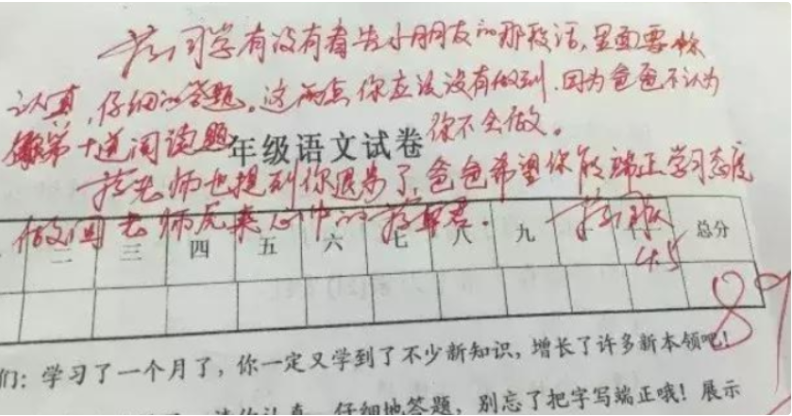 同学有没有看告小朋友的那段话,里面要你
认真,仔细的答题。这两点你应该没有做到,因为爸爸不认为
第十道阅读题 你不会做。
年级语文试卷
老师也提到你退步了,爸爸希望你能端正学习态度
做回老师原来心中的
二 三 四 五 六 七 八 九 十 总分
4.5
89
们:学习了一个月了,你一定又学到了不少新知识,增长了许多新本领吧!
请你认真、仔细地答题,别忘了把字写端正哦!展示